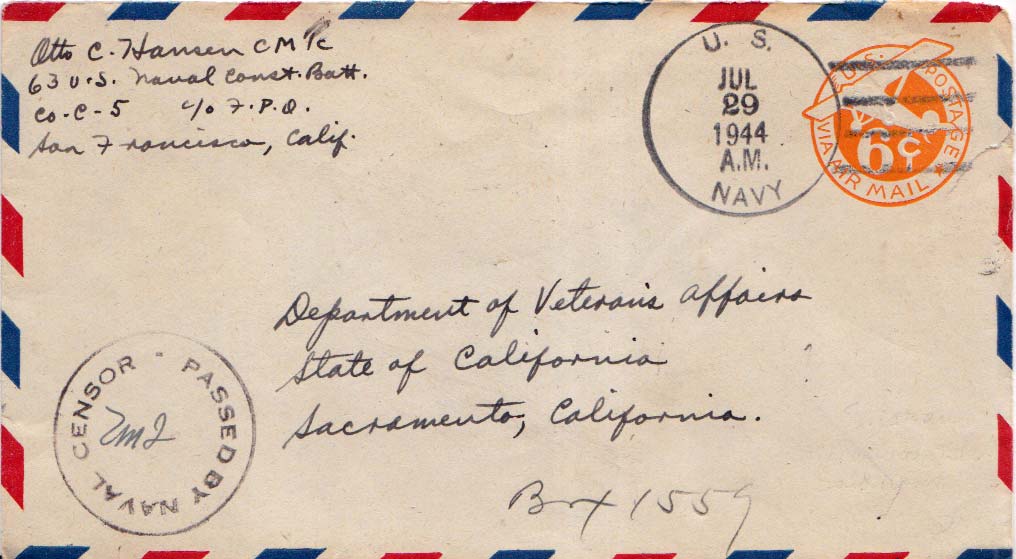 Otto C. Hansen CM1c
63 U.S. Naval Const. Batt.
Co-C-5 c/o F.P.O.
San Francisco, Calif.
U. S.
JUL
29
1944
A.M.
NAVY
U.S. POSTAGE
6¢
VIA AIR MAIL
Department of Veterans Affairs
State of California
Sacramento, California.
PASSED BY NAVAL CENSOR
Box 1559